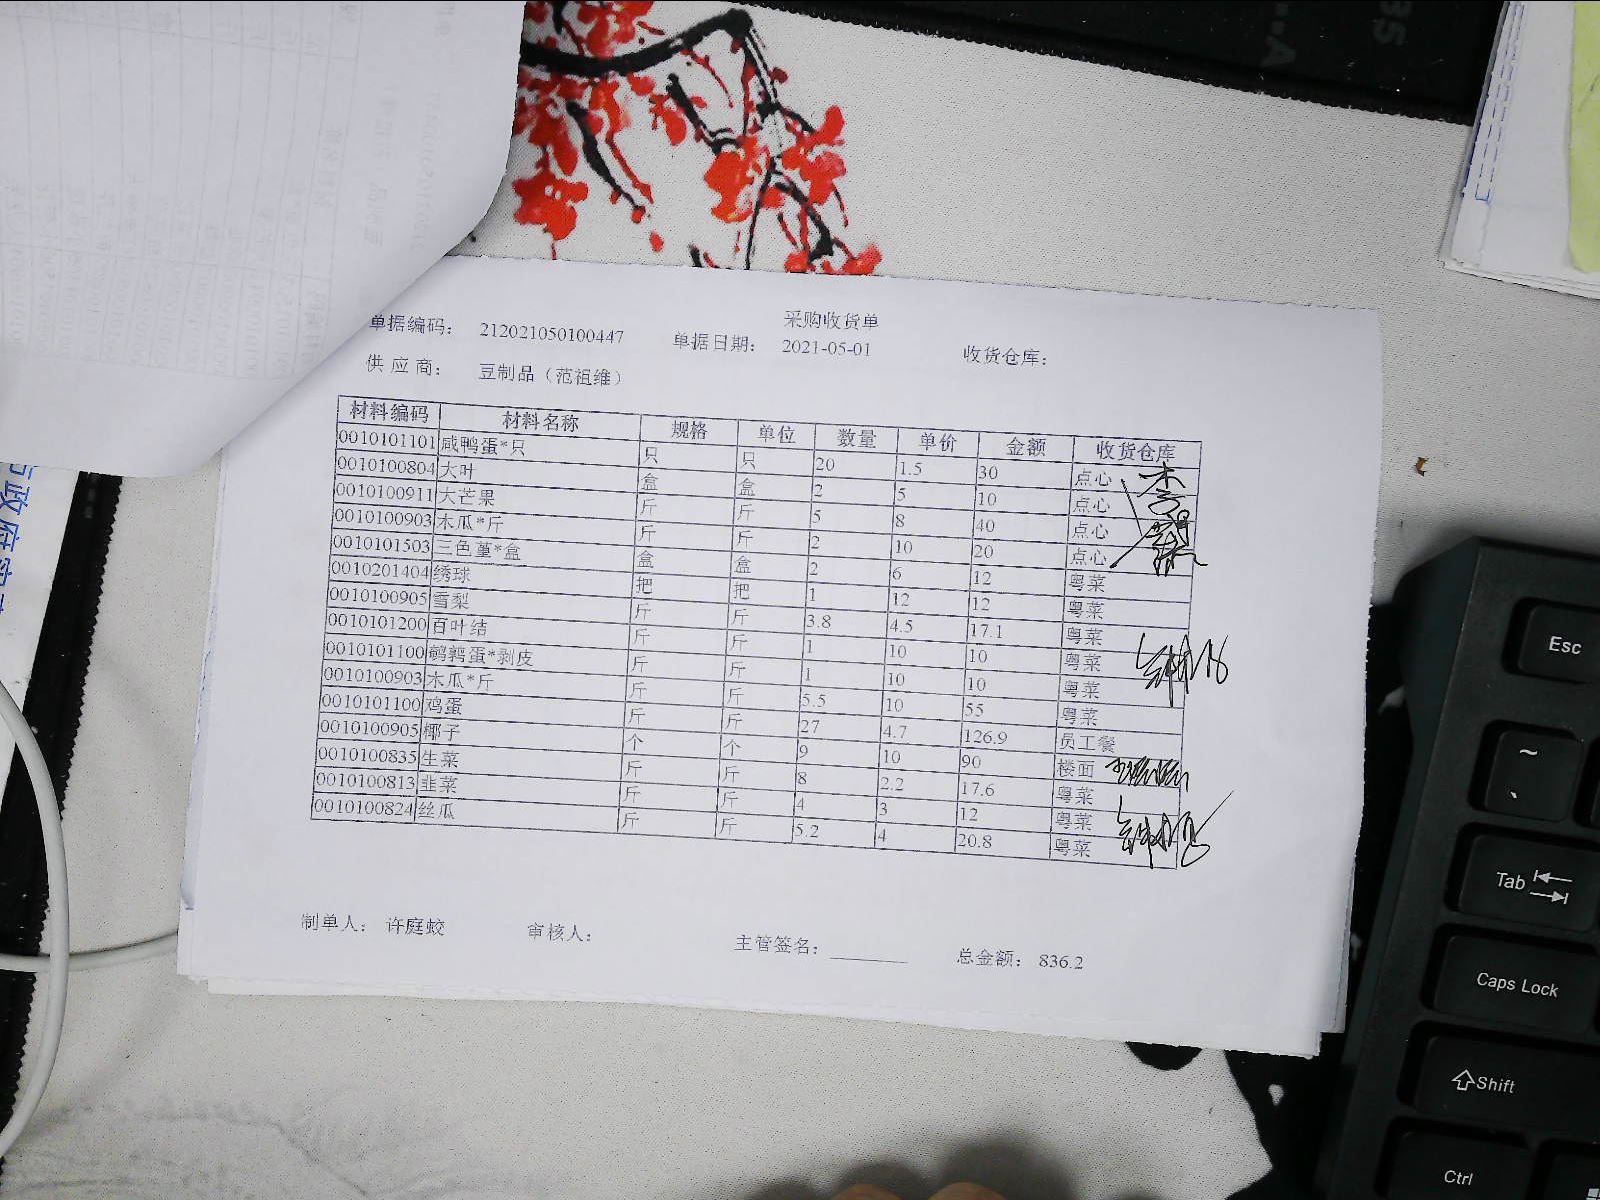 采购收货单
单据编码： 212021050100447 单据日期： 2021-05-01 收货仓库：
供 应 商： 豆制品（范祖维）
材料编码 材料名称 规格 单位 数量 单价 金额 收货仓库
0010101101 咸鸭蛋*只 只 只 20 1.5 30 点心
0010100804 大叶 盒 盒 2 5 10 点心
0010100911 大芒果 斤 斤 5 8 40 点心
0010100903 木瓜*斤 斤 斤 2 10 20 点心
0010101503 三色堇*盒 盒 盒 2 6 12 粤菜
0010201404 绣球 把 把 1 12 12 粤菜
0010100905 雪梨 斤 斤 3.8 4.5 17.1 粤菜
0010101200 百叶结 斤 斤 1 10 10 粤菜
0010101100 鹌鹑蛋*剥皮 斤 斤 1 10 10 粤菜
0010100903 木瓜*斤 斤 斤 5.5 10 55 粤菜
0010101100 鸡蛋 斤 斤 27 4.7 126.9 员工餐
0010100905 椰子 个 个 9 10 90 楼面
0010100835 生菜 斤 斤 8 2.2 17.6 粤菜
0010100813 韭菜 斤 斤 4 3 12 粤菜
0010100824 丝瓜 斤 斤 5.2 4 20.8 粤菜
制单人： 许庭蛟 审核人： 主管签名： 总金额： 836.2
Esc
~
Tab
Caps Lock
Shift
Ctrl